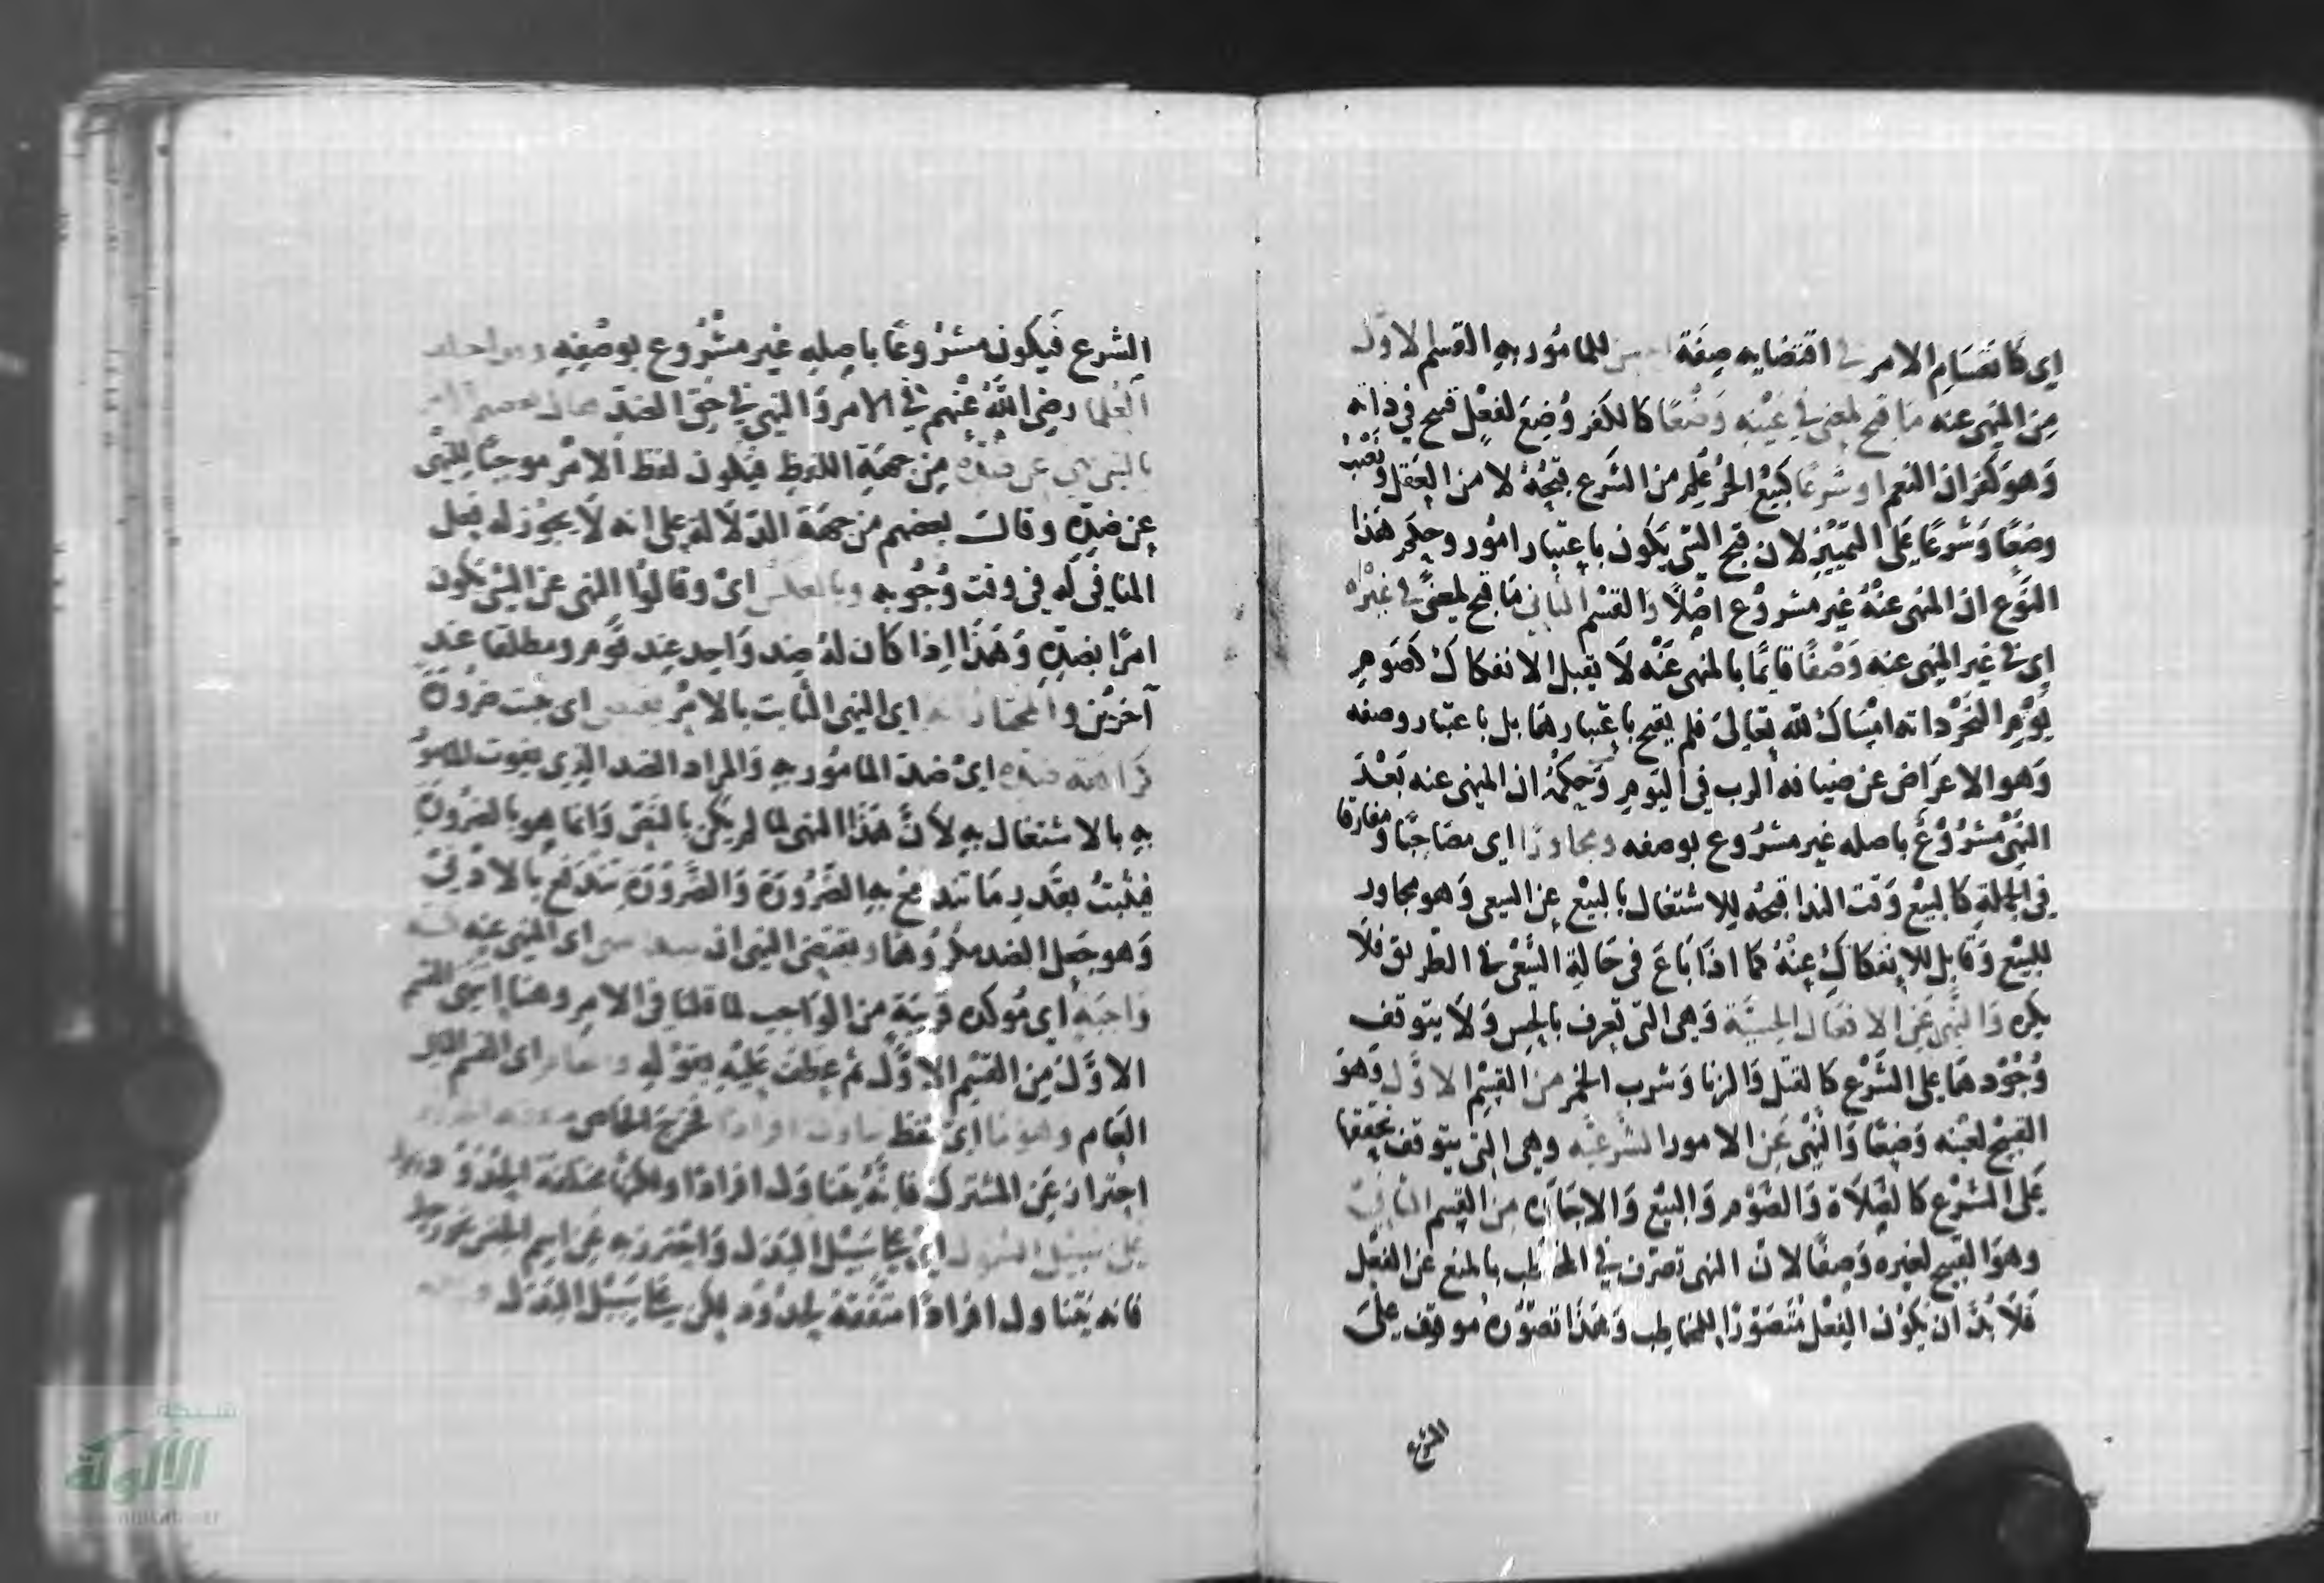 اي كانقسام الامر في اقتضايه صفة للمامور به القسم الاول
من المنهى عنه ما قبح لمعنى في عينه وضعا كالكفر وضع لفعل قبيح في ذاته
وهو كفران النعم او شرعا كبيع الحر علم من الشرع قبحه لا من العقل ونصب
وضعا وشرعا على التمييز لان قبح الشي يكون باعتبار امور وحكم هذا
النوع ان المنهى عنه غير مشروع اصلا والقسم الثاني ما قبح لمعنى في غيره
اي في غير المنهى عنه وصفا قايما بالمنهى عنه لا يقبل الانفكاك كصوم
يوم النحر ذاته امساك لله تعالى فلم يقبح باعتبارها بل باعتبار وصفه
وهو الاعراض عن ضيافة الرب في اليوم وحكمه ان المنهى عنه بعد
النهى مشروع باصله غير مشروع بوصفه ومجاورا اي مصاحبا ومفارقا
في الجملة كالبيع وقت الندا قبحه للاشتغال بالبيع عن السعى وهو مجاور
للبيع وقابل للانفكاك عنه كما اذا باع في حالة السعى في الطريق فلا
يكره والنهى عن الافعال الحسية وهي التي تعرف بالحس ولا يتوقف
وجودها على الشرع كالقتل والزنا وشرب الخمر من القسم الاول وهو
القبيح لعينه وضعا والنهى عن الامور الشرعية وهي التي يتوقف تحققها
على الشرع كالصلاة والصوم والبيع والاجارة من القسم الثاني
وهو القبيح لغيره وصفا لان النهى تصرف في المخاطب بالمنع عن الفعل
فلا بد ان يكون الفعل متصورا للمخاطب وهذا تصوره موقوف على
الشرع
الشرع فيكون مشروعا باصله غير مشروع بوصفه
العلما رضى الله عنهم في الامر والنهى في حق الضد
بالشى نهى عن ضده من جهة اللفظ فيكون لفظ الامر موجبا للنهى
عن ضده وقال بعضهم من جهة الدلالة على انه لا يجوز له فعل
المنافي له في وقت وجوبه وبالعكس اي وقالوا النهى عن الشى يكون
امرا بضده وهذا اذا كان له ضد واحد عند قوم ومطلقا عند
آخرين والمختار اي النهى الثابت بالامر يقتضى اي يثبت ضرورة
كراهة ضده اي ضد المامور به والمراد الضد الذي يفوت المامور
به بالاشتغال به لان هذا النهى لما لم يكن بالنص وانما هو بالضرورة
فيثبت بقدر ما تندفع به الضرورة والضرورة تندفع بالادنى
وهو جعل الضد مكروها ويقتضى النهى ان اي المنهى عنه
واجبة اي مؤكدة قريبة من الواجب لما قلنا في الامر وهنا القسم
الاول من القسم الاول ثم عطف عليه بقوله اي القسم
العام وهو ما اي لفظ افرادا فخرج الخاص
احتراز عن المشترك فانه يتناول افرادا ولكنها مختلفة الحدود
على سبيل الشمول اي على سبيل البدل واحترز به عن اسم الجنس
فانه يتناول افرادا متفقة الحدود لكن على سبيل البدل
شبكة
الألوكة